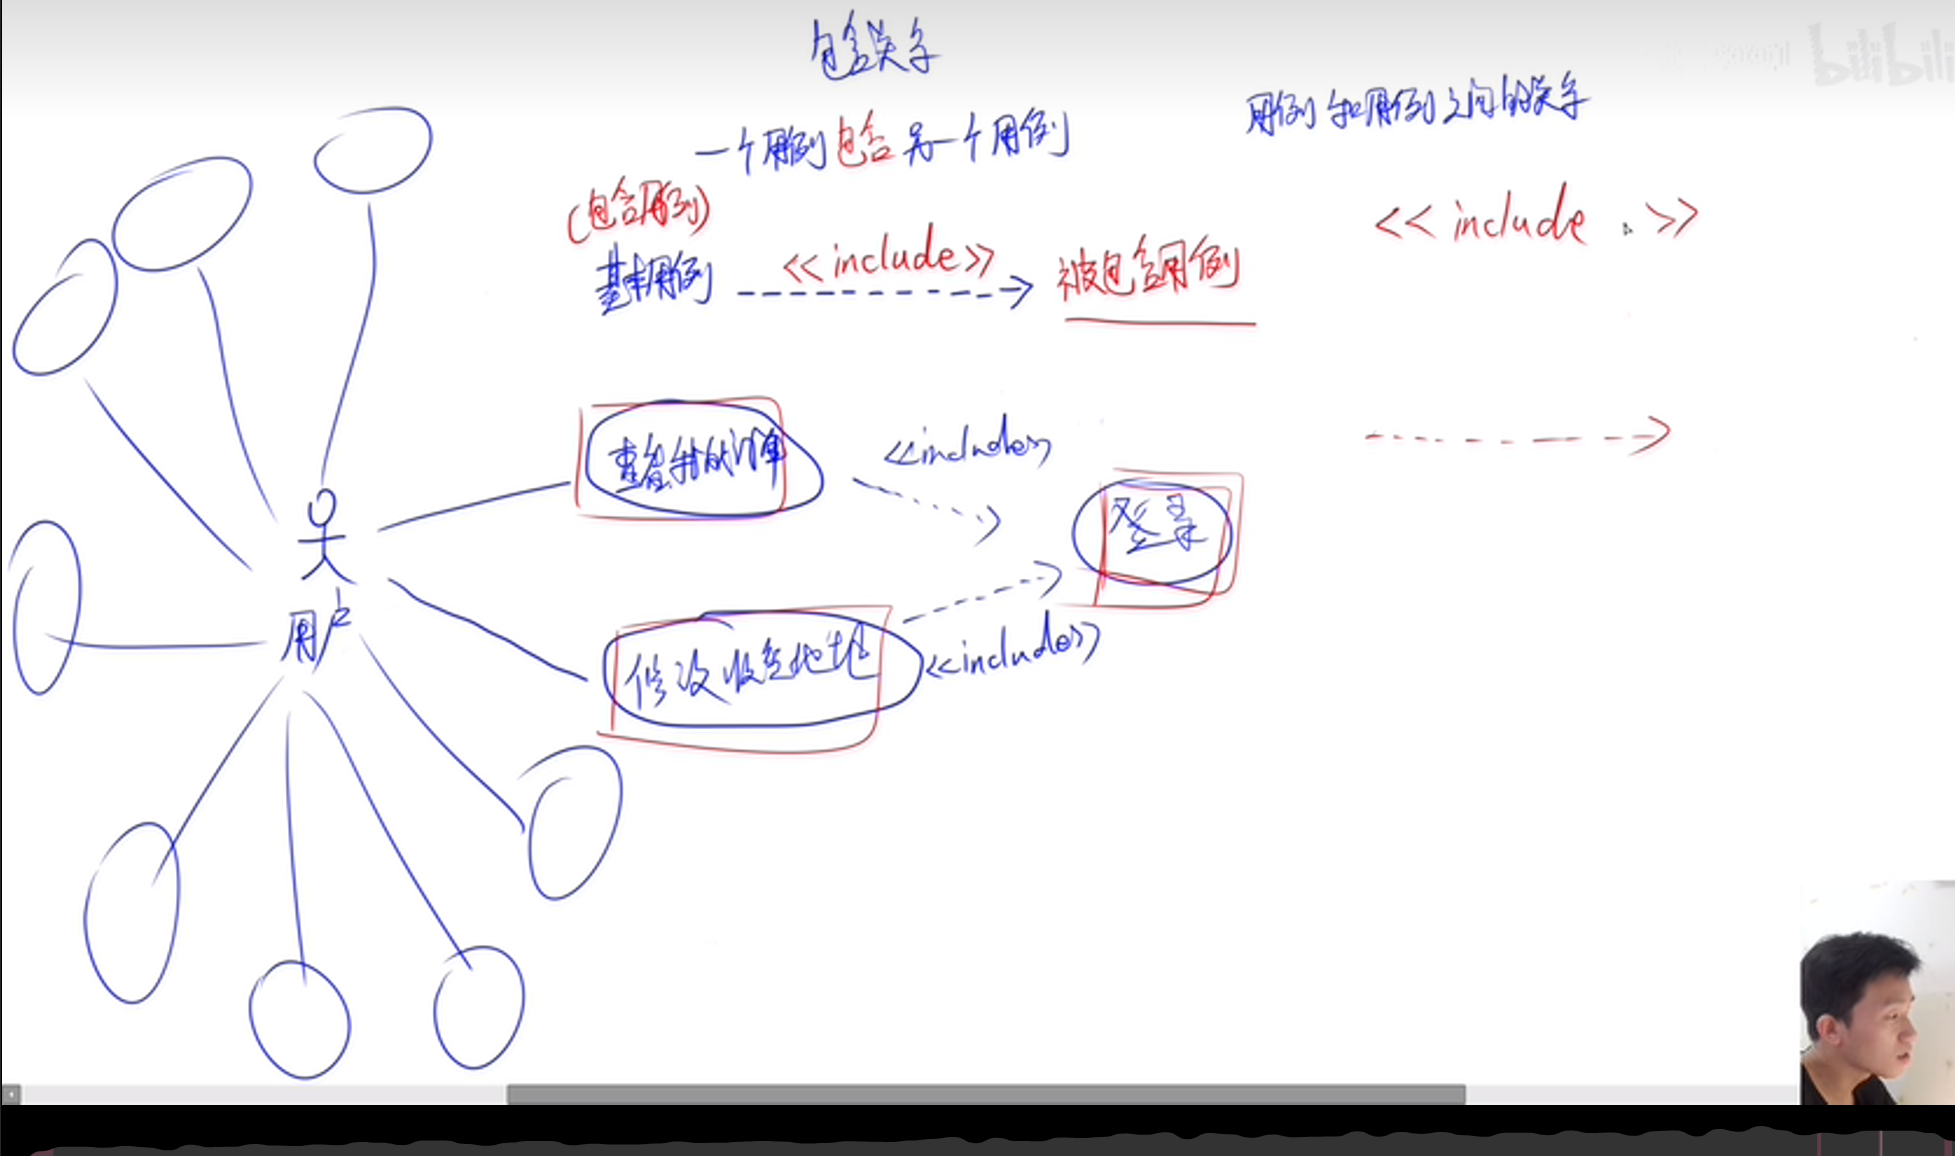 包含关系
用例和用例之间的关系
一个用例包含另一个用例
(包含用例)
基本用例
<<include>>
被包含用例
<<include >>
查看我的订单
<<include>>
登录
用户
修改收货地址
<<include>>
bilibili